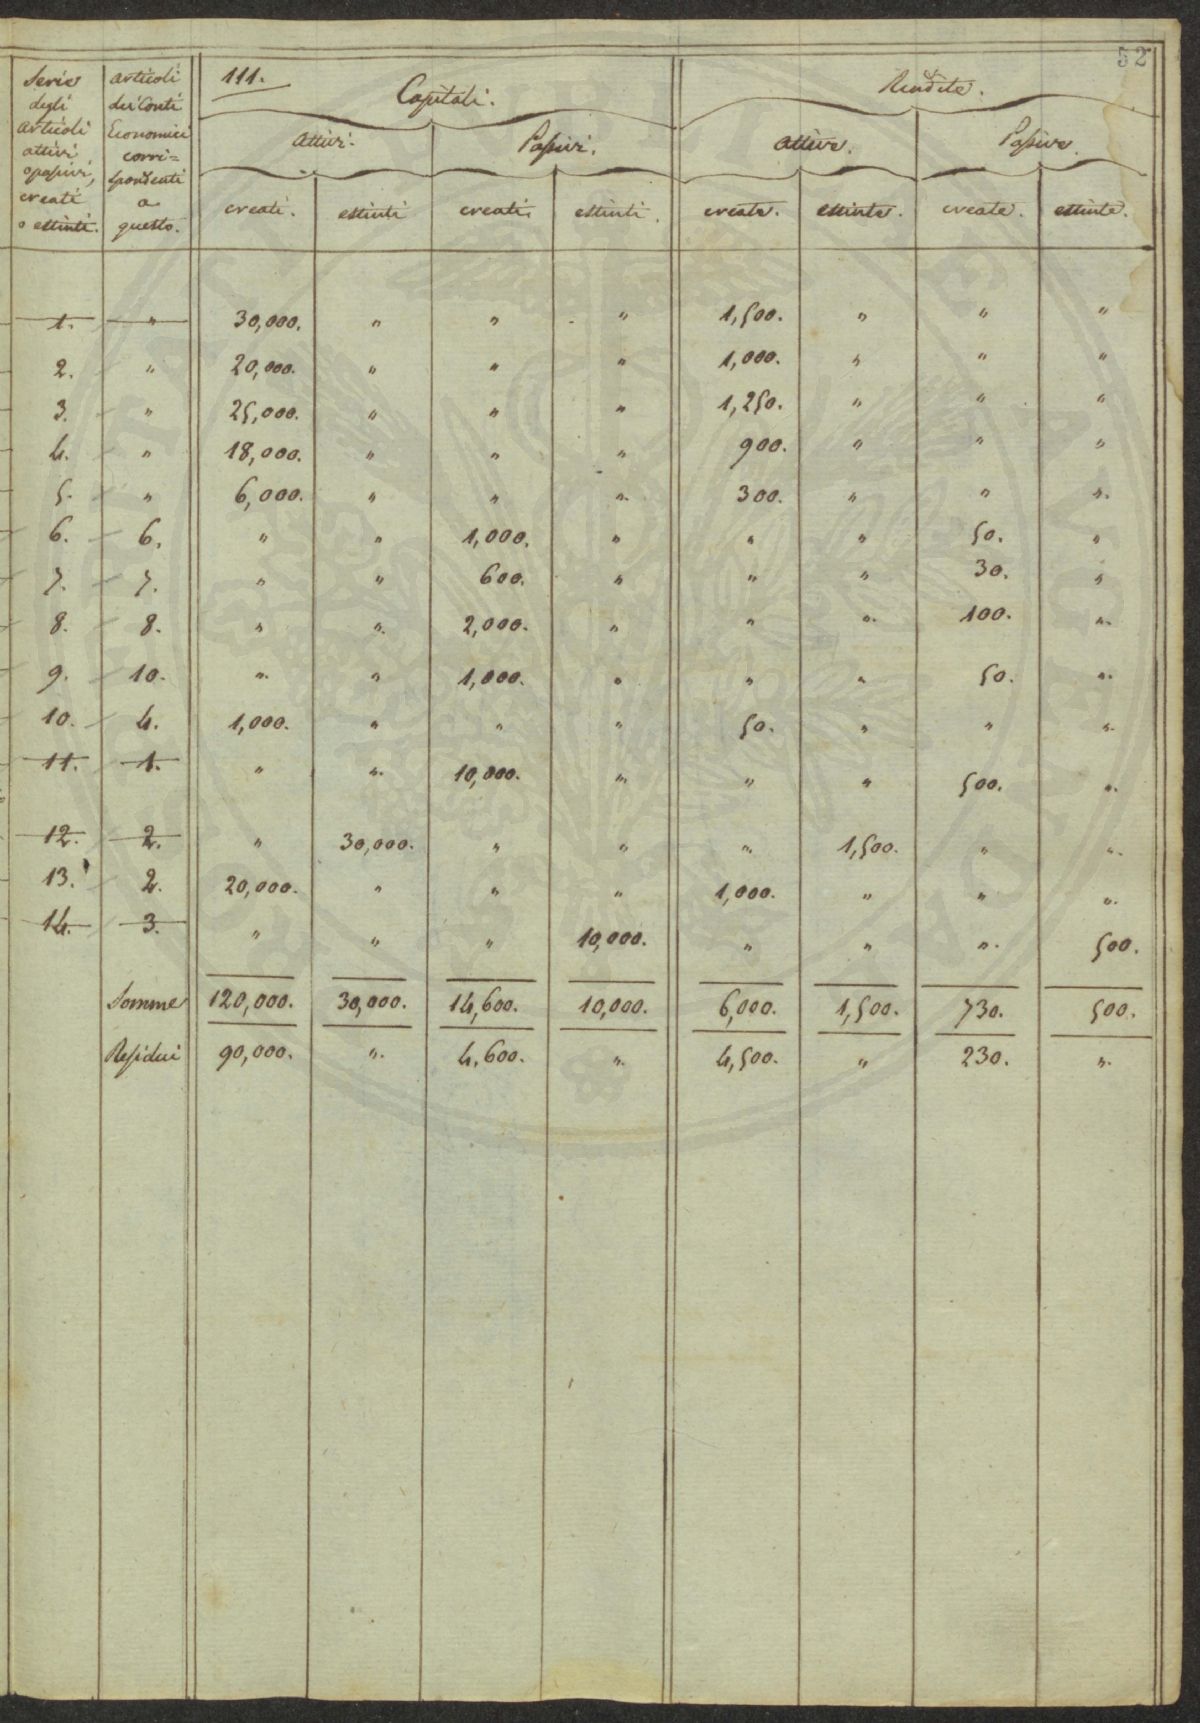 52
Serie degli articoli attivi, o passivi, creati o estinti. | Articoli dei Conti Economici corri= spondenti a questo. | 111. Capitali. | Rendite.
Attivi. | Passivi. | Attive. | Passive.
creati. | estinti | creati. | estinti. | create. | estinte. | create. | estinte.
1. | " | 30,000. | " | " | " | 1,500. | " | " | "
2. | " | 20,000. | " | " | " | 1,000. | " | " | "
3. | " | 25,000. | " | " | " | 1,250. | " | " | "
4. | " | 18,000. | " | " | " | 900. | " | " | "
5. | " | 6,000. | " | " | ". | 300. | " | " | ".
6. | 6. | " | " | 1,000. | " | " | " | 50. | "
7. | 7. | " | " | 600. | " | " | " | 30. | "
8. | 8. | " | ". | 2,000. | " | " | ". | 100. | ".
9. | 10. | ". | " | 1,000. | " | " | " | 50. | ".
10. | 4. | 1,000. | " | " | " | 50. | " | " | ".
11. | 1. | " | ". | 10,000. | ". | " | " | 500. | ".
12. | 2. | " | 30,000. | " | " | ". | 1,500. | " | ".
13. | 2. | 20,000. | " | " | " | 1,000. | " | " | ".
14. | 3. | " | " | " | 10,000. | " | " | ". | 500.
Somme | 120,000. | 30,000. | 14,600. | 10,000. | 6,000. | 1,500. | 730. | 500.
Residui | 90,000. | ". | 4,600. | ". | 4,500. | " | 230. | ".